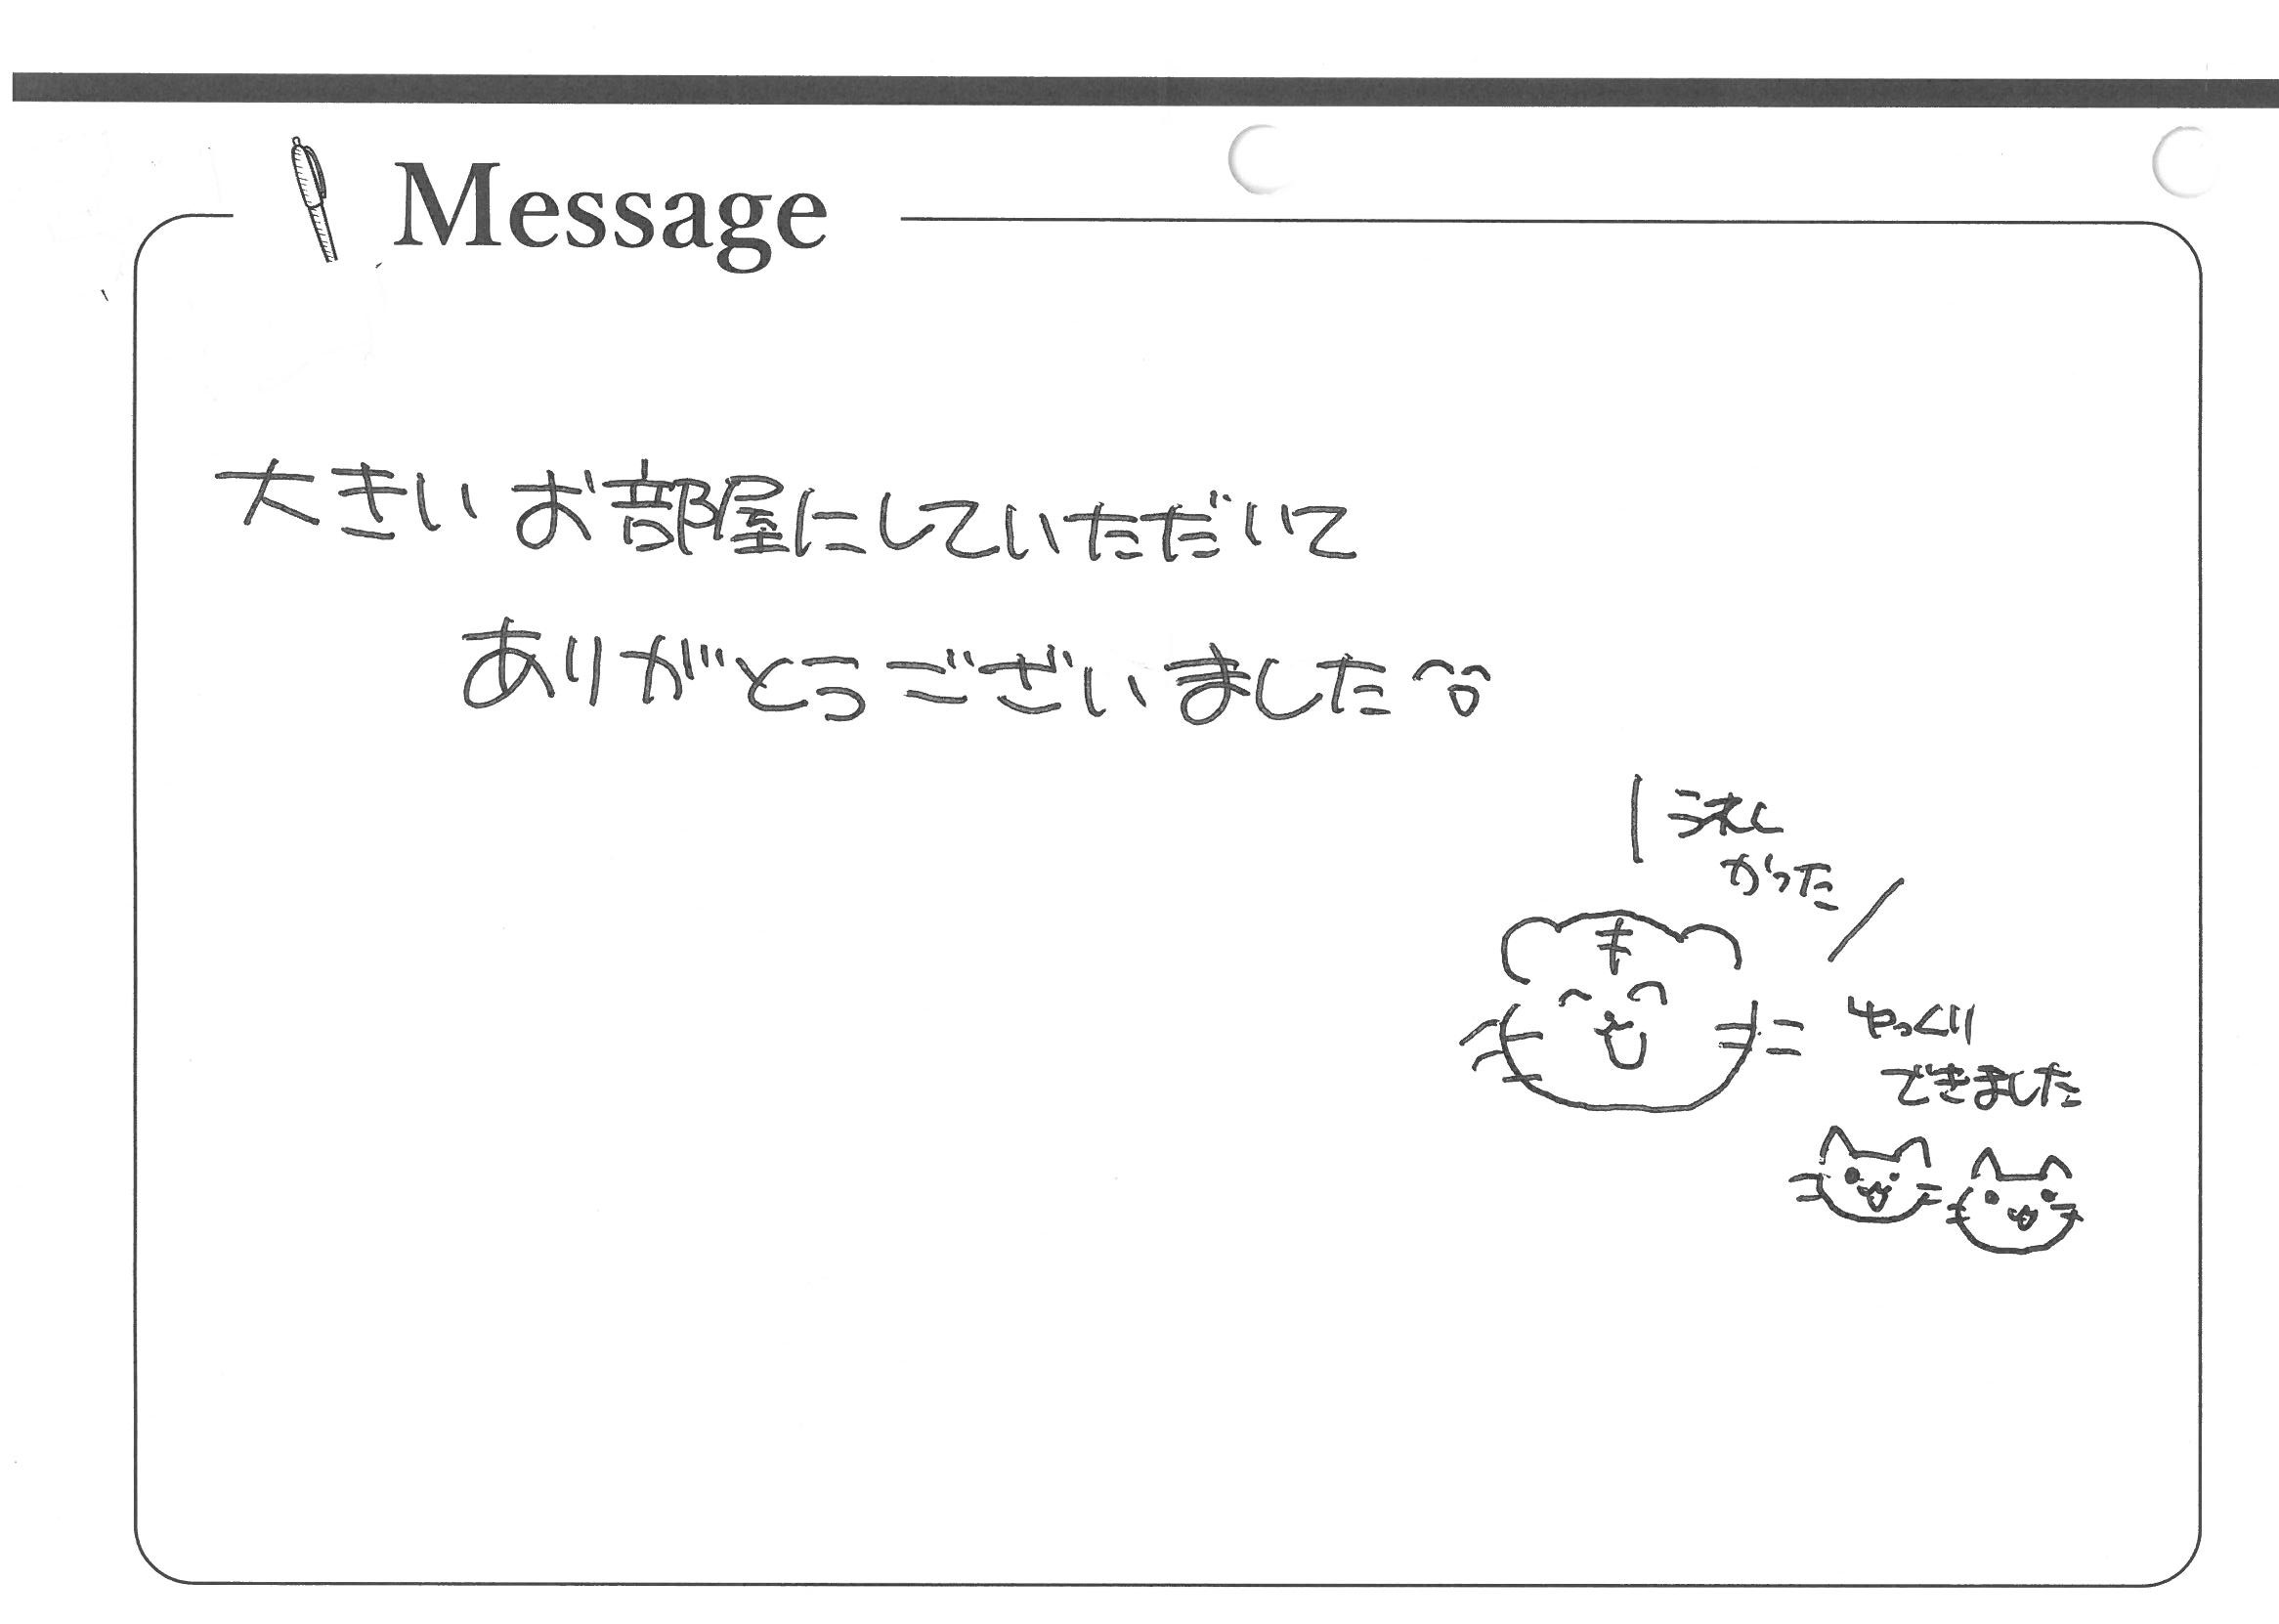 Message
大きいお部屋にしていただいて
ありがとうございました
うれし
かった
ゆっくり
できました